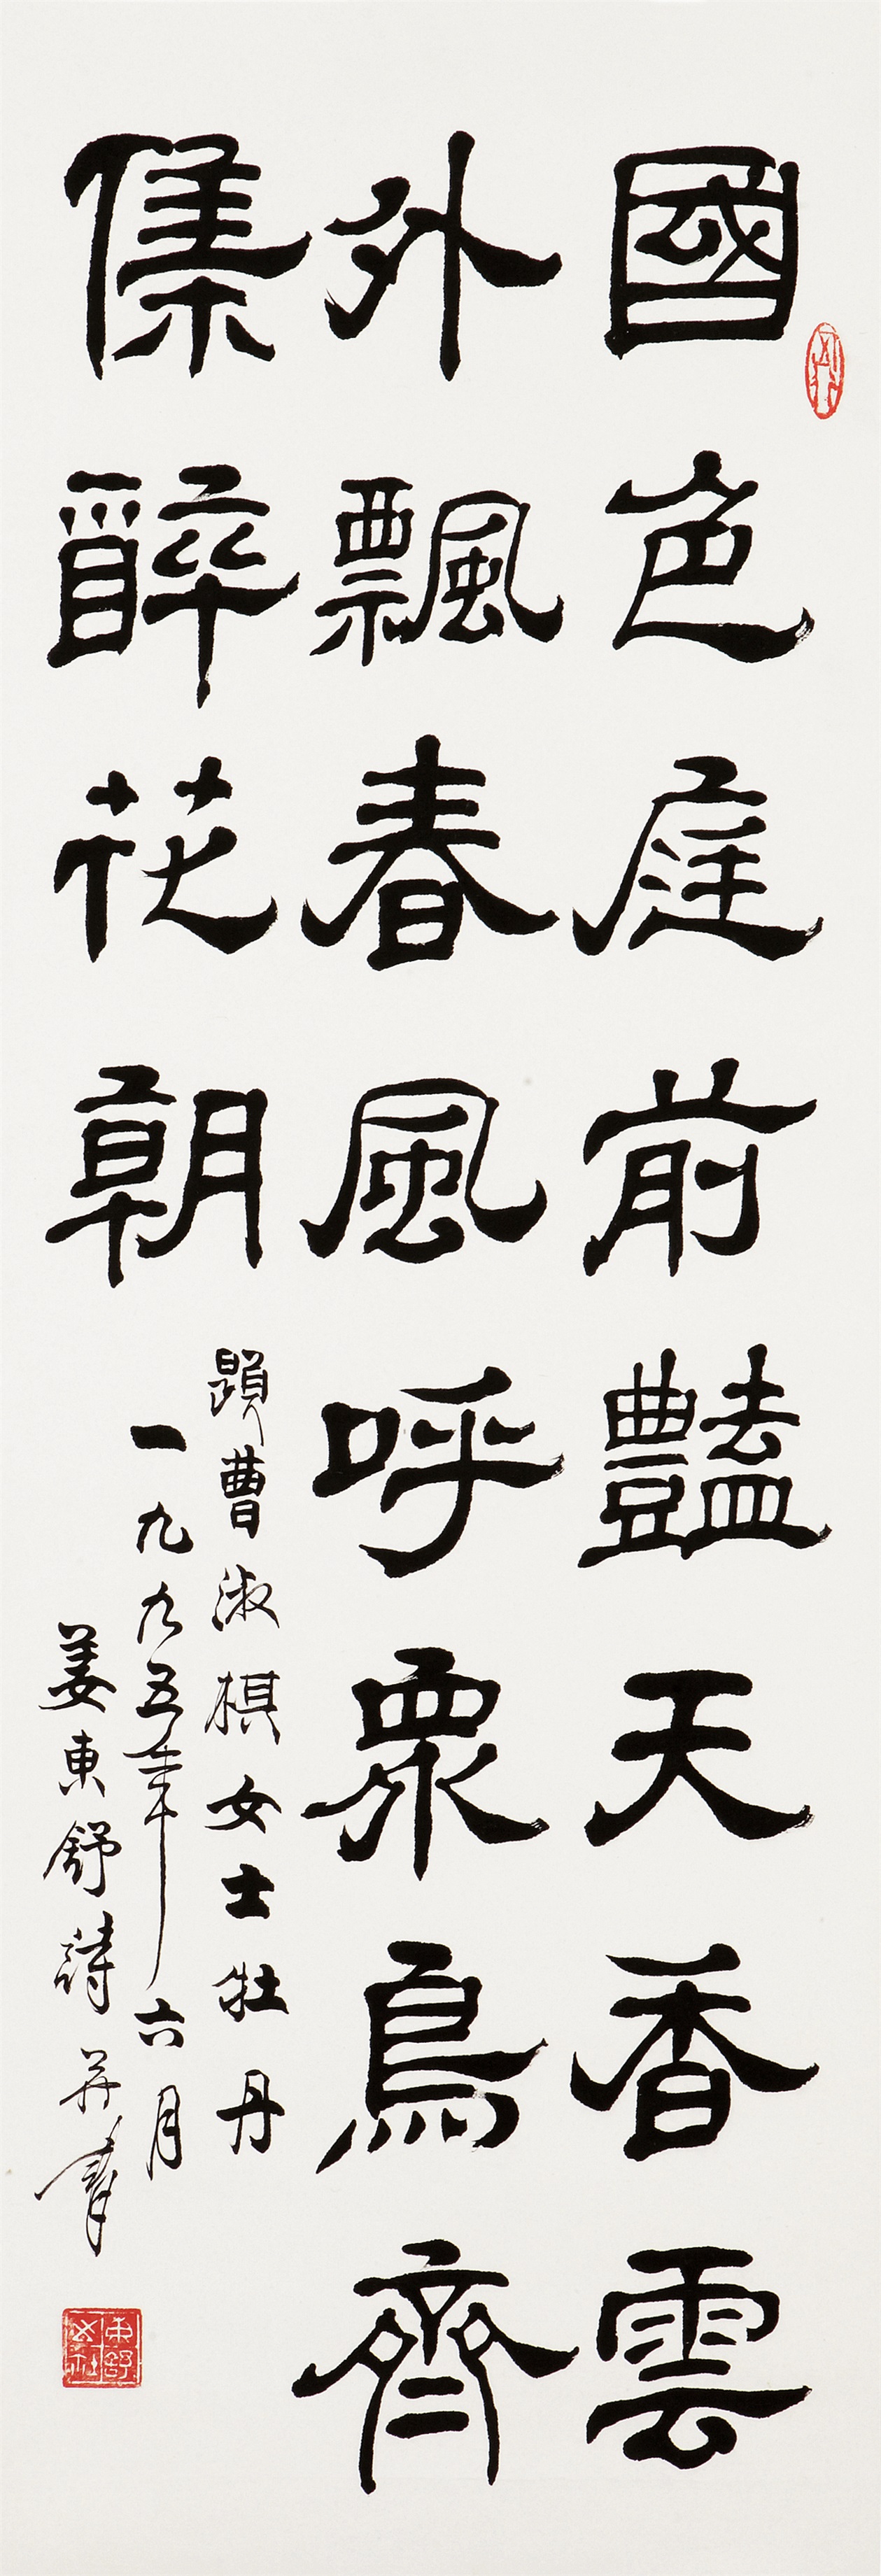 國色庭前豔天香雲
外飄春風呼眾鳥齊
集醉花朝
題曹淑棋女士牡丹
一九九五年六月
姜東舒詩并書